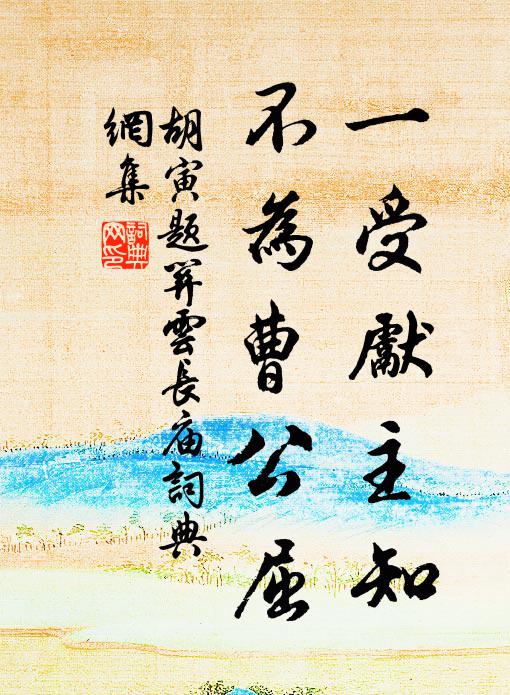 一受獻主知
不為曹公屈
胡寅題關雲長庙詞典
網集
詞典
网印